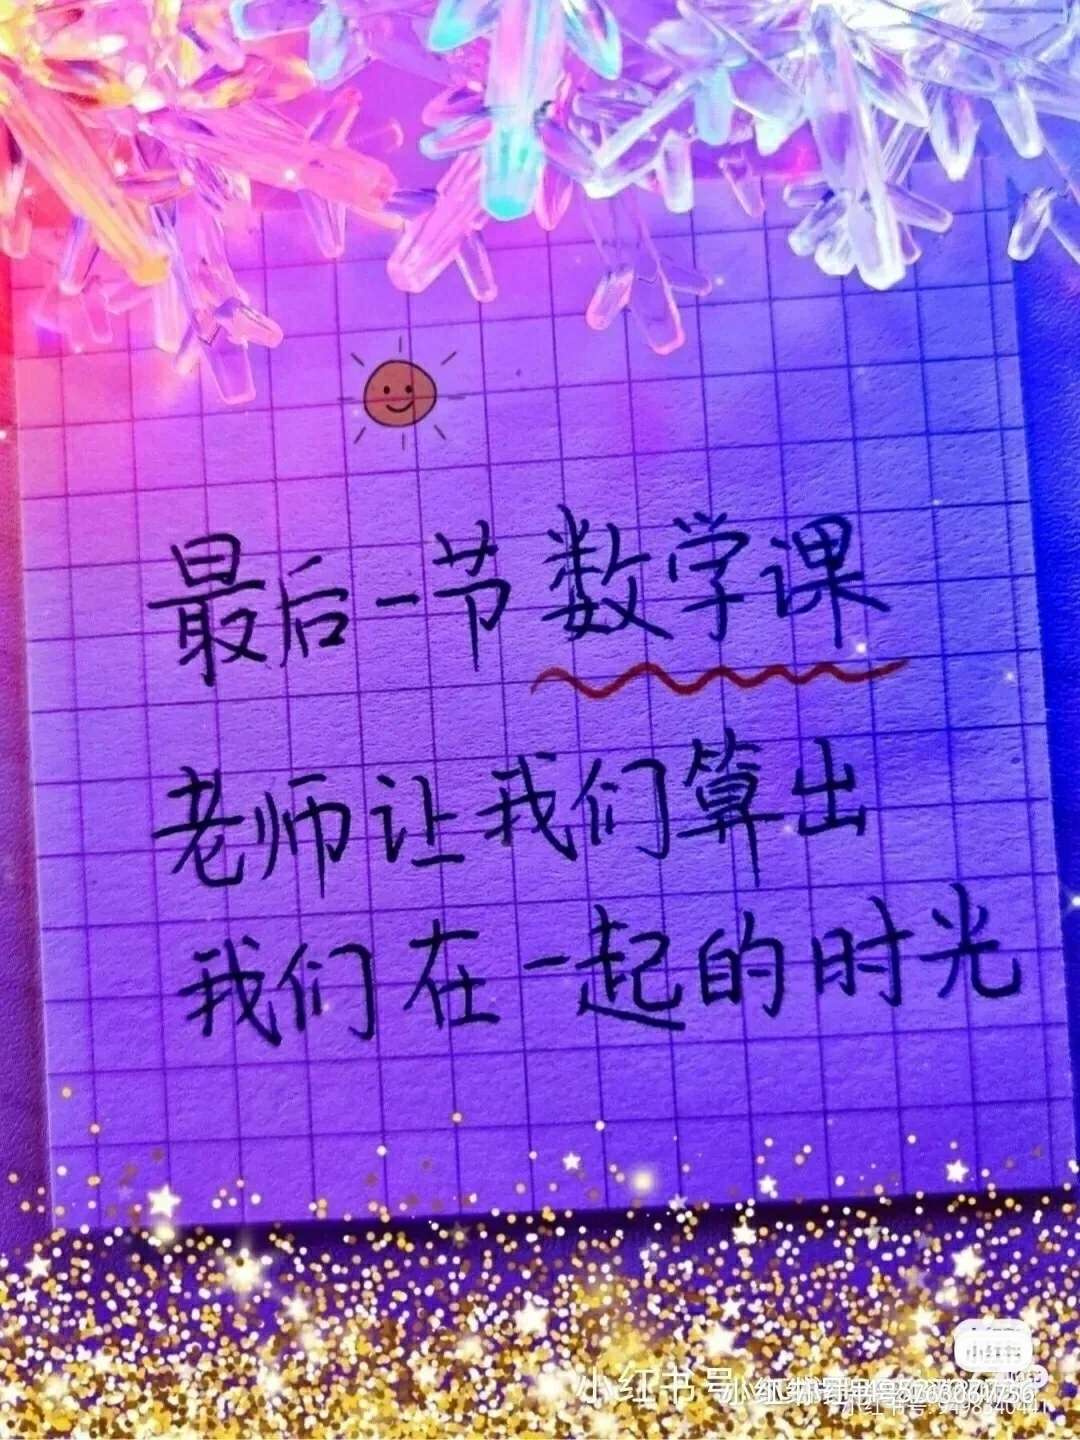 最后一节数学课
老师让我们算出
我们在一起的时光
小红书
小红书号